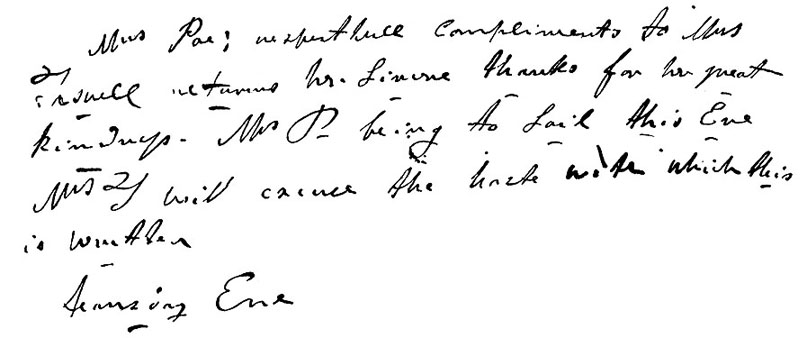 Mrs Poe's respectfull compliments to Mrs
returns her sincere thanks for her great
kindness. Mrs P. being to sail this Eve
Mrs will excuse the haste with which this
is written
Eve